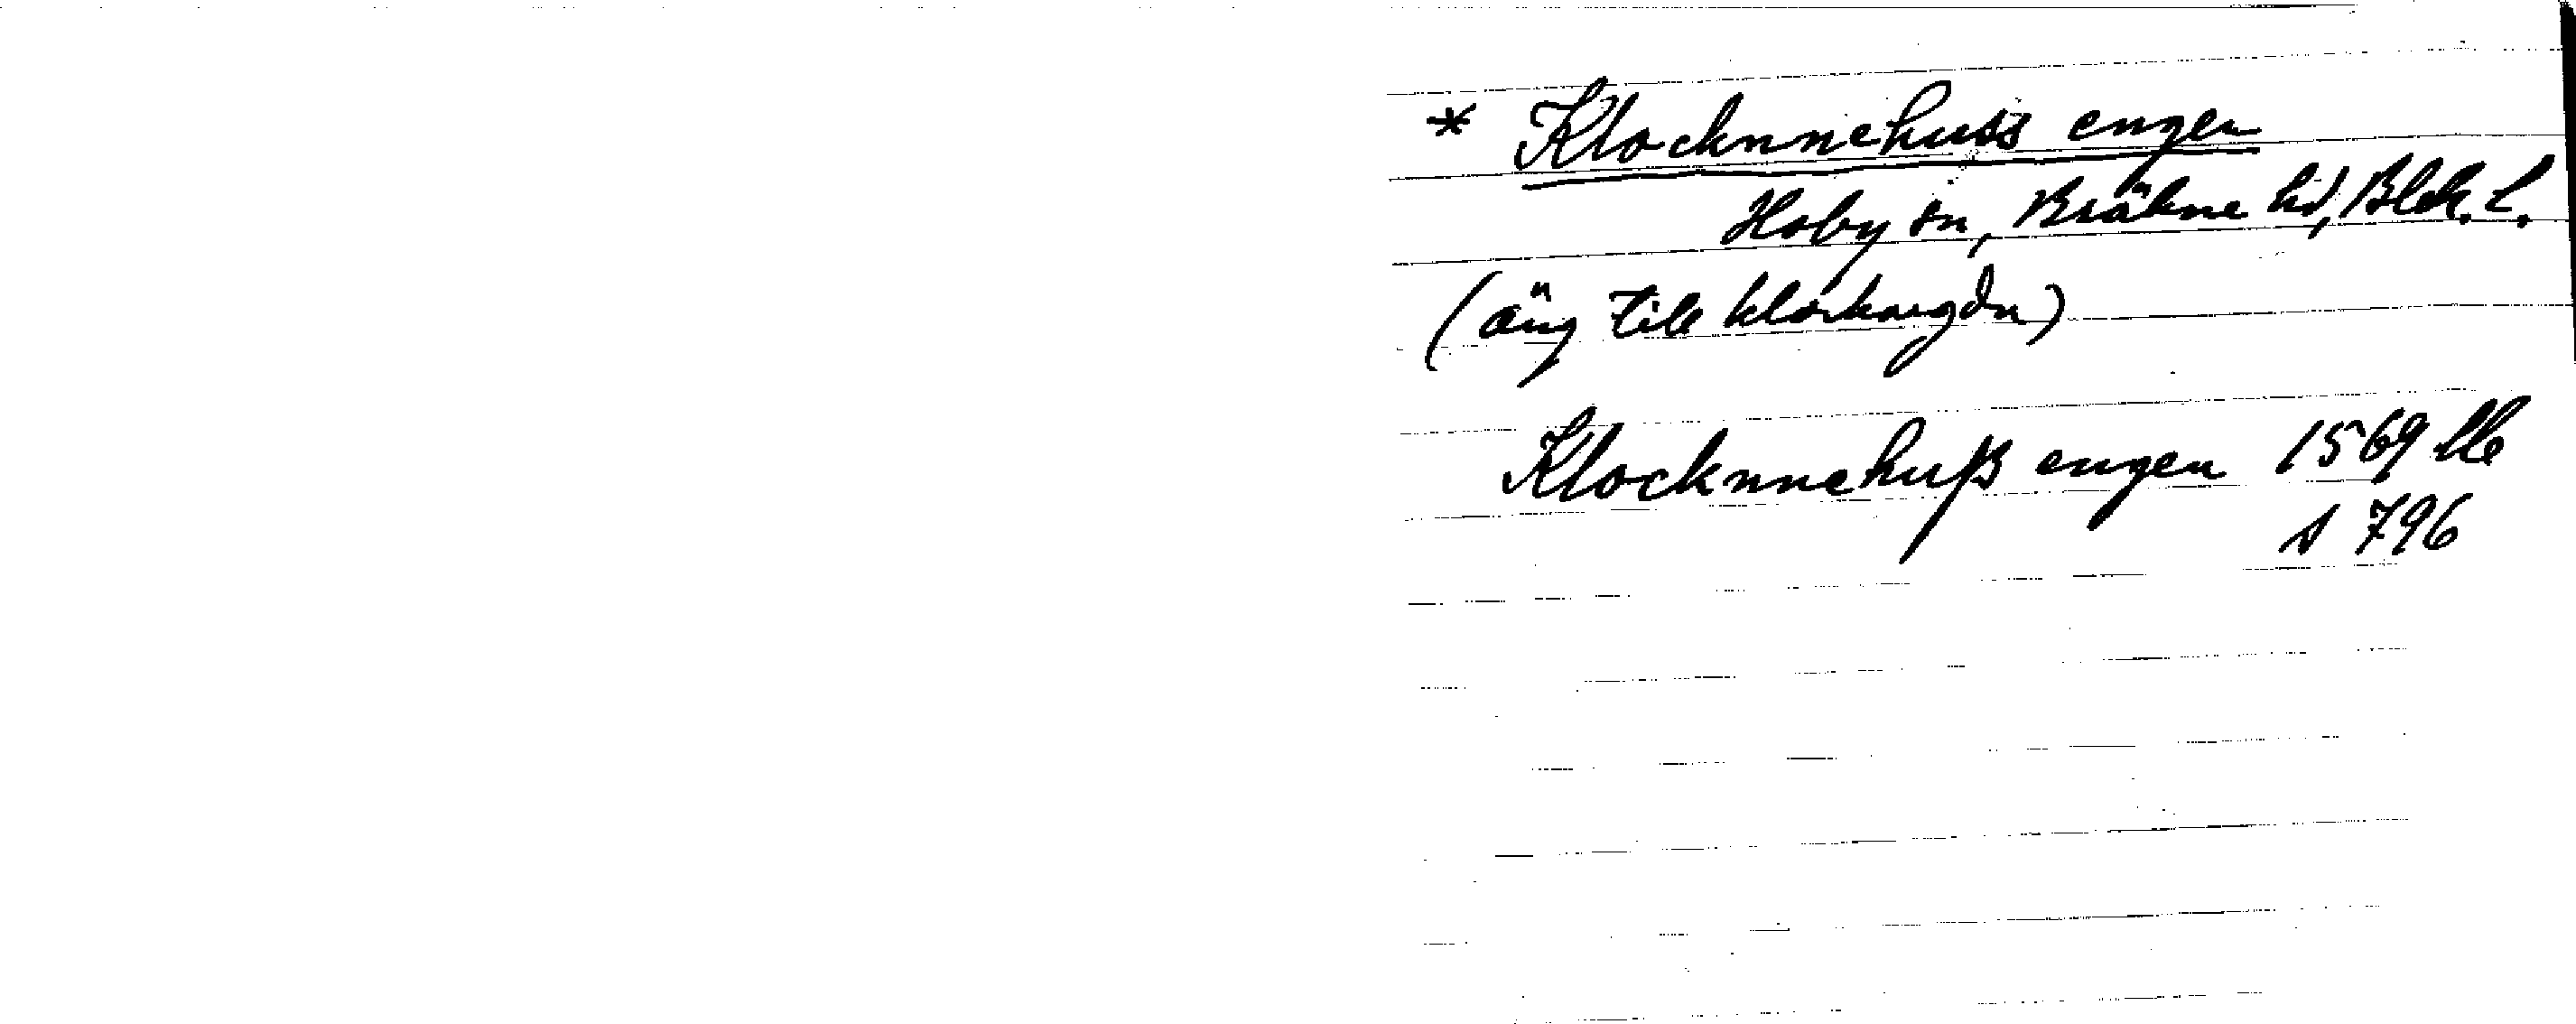 * Klocknnehuss engen
Hoby sn, Bräkne hd, Blek. l.
(äng till klockargdn)
Klocknnehuß engen 1569 Llb
s 796